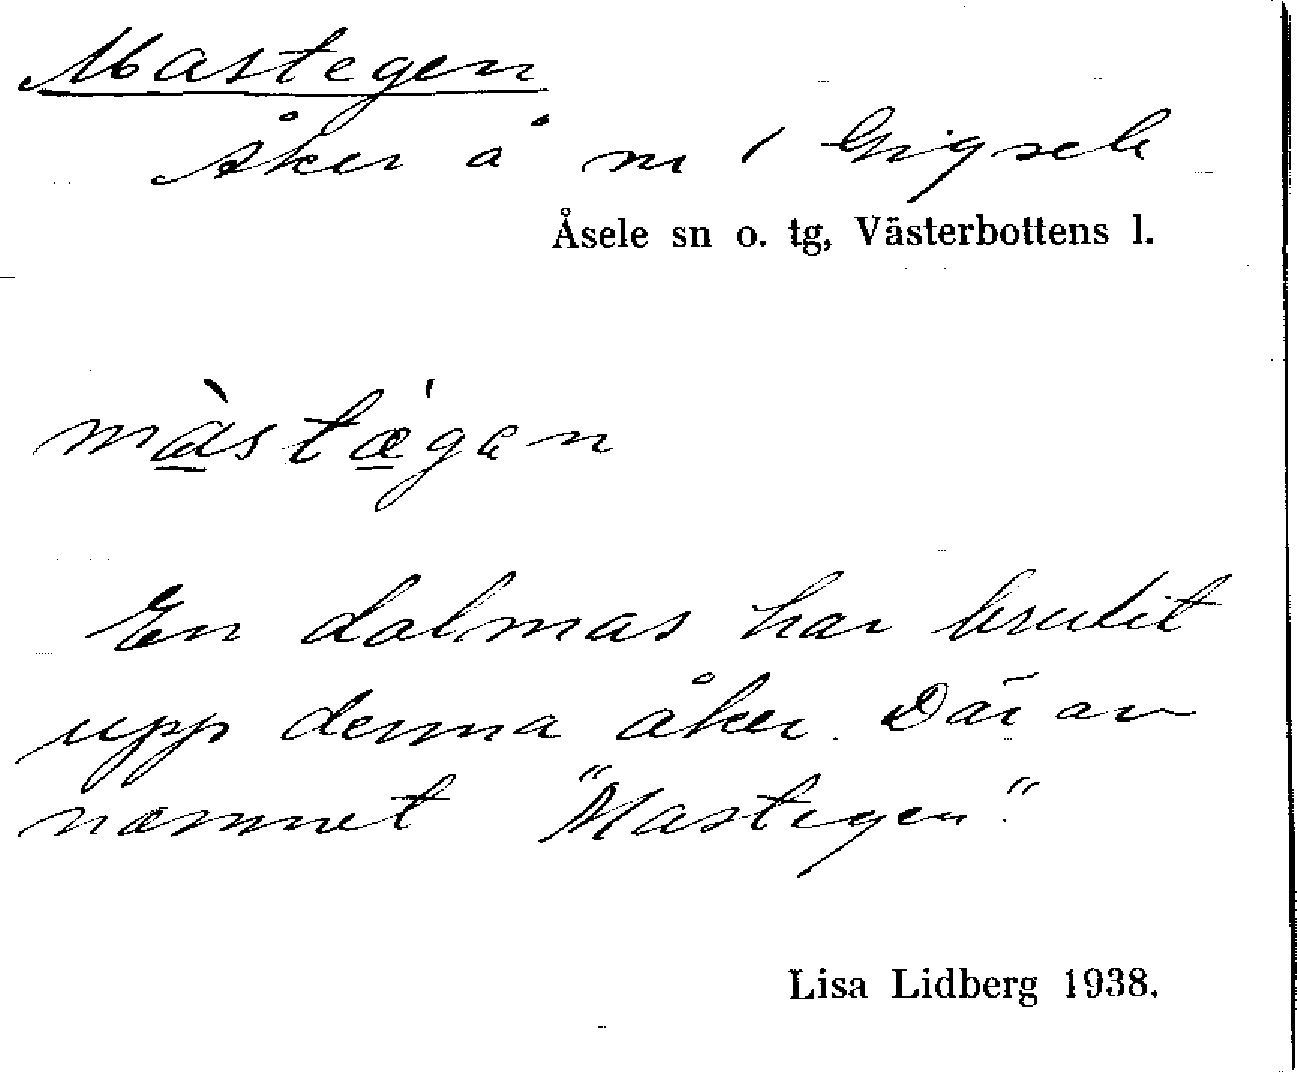 Mastegen
åker å nr 1 Gigsele
Åsele sn o. tg, Västerbottens l.
màstǽgen
En dalmas har brutit
upp denna åker. Därav
namnet "Mastegen".
Lisa Lidberg 1938.